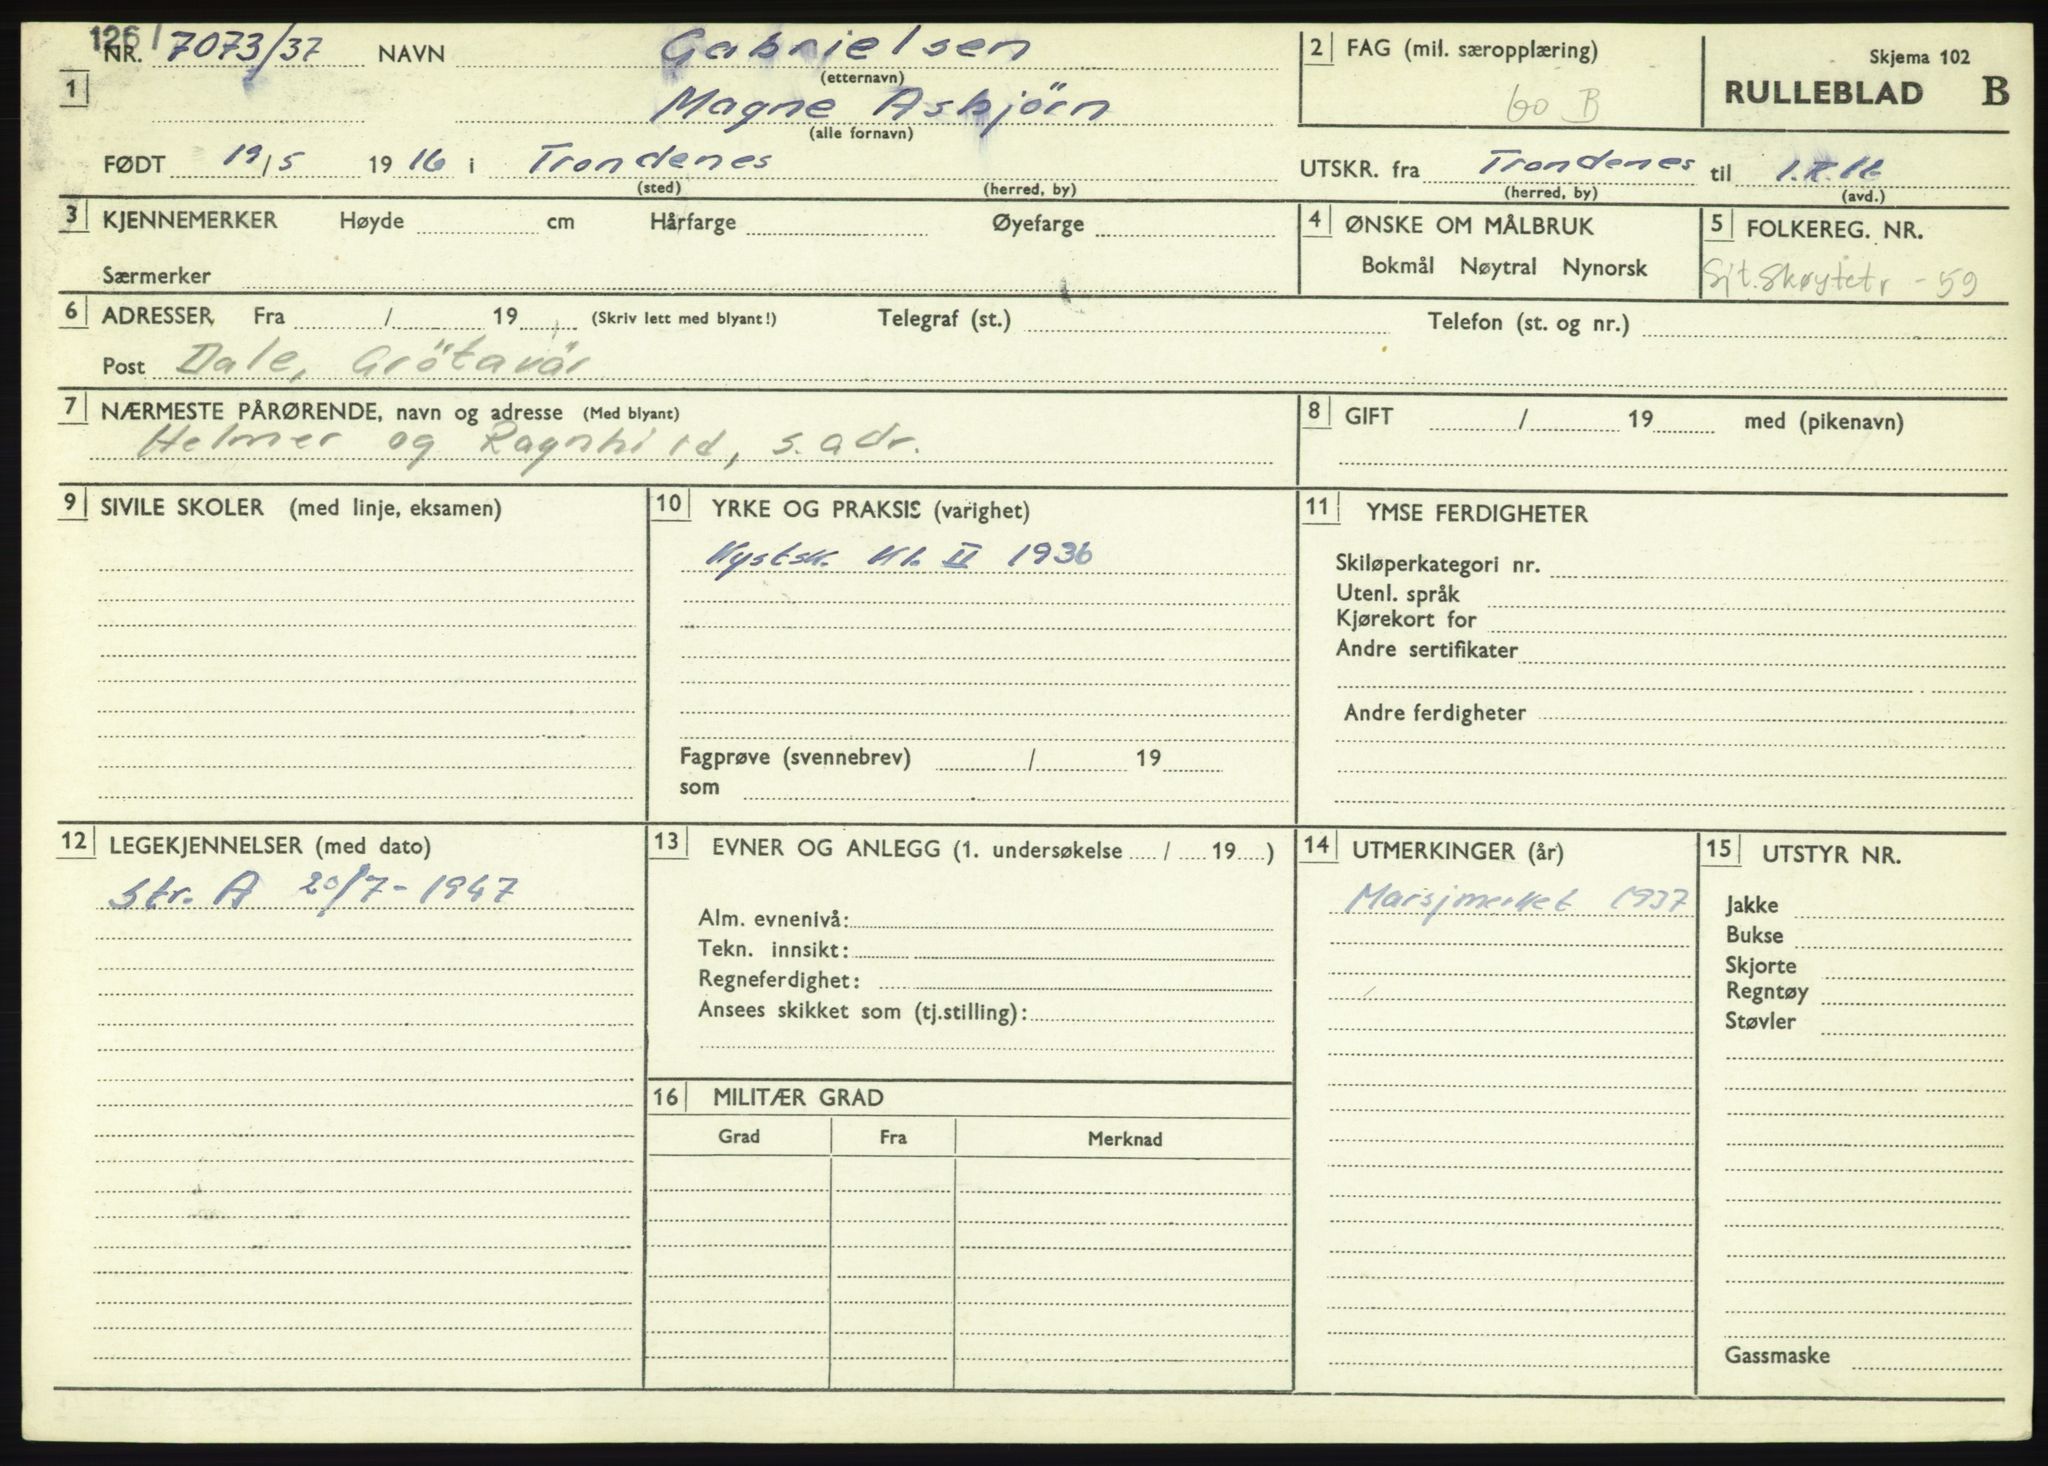 126/
NR. 7073/37 NAVN Gabrielsen
(etternavn)
1
Magne Asbjörn
(alle fornavn)
FØDT 19/5 1916 i Trondenes
(sted) (herred, by)
2 FAG (mil. særopplæring)
60 B
Skjema 102
RULLEBLAD B
UTSKR. fra Trondenes til I.R.16
(herred, by) (avd.)
3 KJENNEMERKER Høyde cm Hårfarge Øyefarge
Særmerker
4 ØNSKE OM MÅLBRUK
Bokmål Nøytral Nynorsk
5 FOLKEREG. NR.
Sjt. Skøytetr -59
6 ADRESSER Fra / 19 (Skriv lett med blyant!) Telegraf (st.) Telefon (st. og nr.)
Post Dale, Grötavär
7 NÆRMESTE PÅRØRENDE, navn og adresse (Med blyant)
Helmer og Ragnhild, s. adr.
8 GIFT / 19 med (pikenavn)
9 SIVILE SKOLER (med linje, eksamen)
10 YRKE OG PRAKSIS (varighet)
Kystsk. kl. II 1936
Fagprøve (svennebrev) / 19
som
11 YMSE FERDIGHETER
Skiløperkategori nr.
Utenl. språk
Kjørekort for
Andre sertifikater
Andre ferdigheter
12 LEGEKJENNELSER (med dato)
Str. A 20/7-1947
13 EVNER OG ANLEGG (1. undersøkelse / 19 )
Alm. evnenivå:
Tekn. innsikt:
Regneferdighet:
Ansees skikket som (tj.stilling):
14 UTMERKINGER (år)
Marsjmerket 1937
15 UTSTYR NR.
Jakke
Bukse
Skjorte
Regntøy
Støvler
Gassmaske
16 MILITÆR GRAD
Grad Fra Merknad